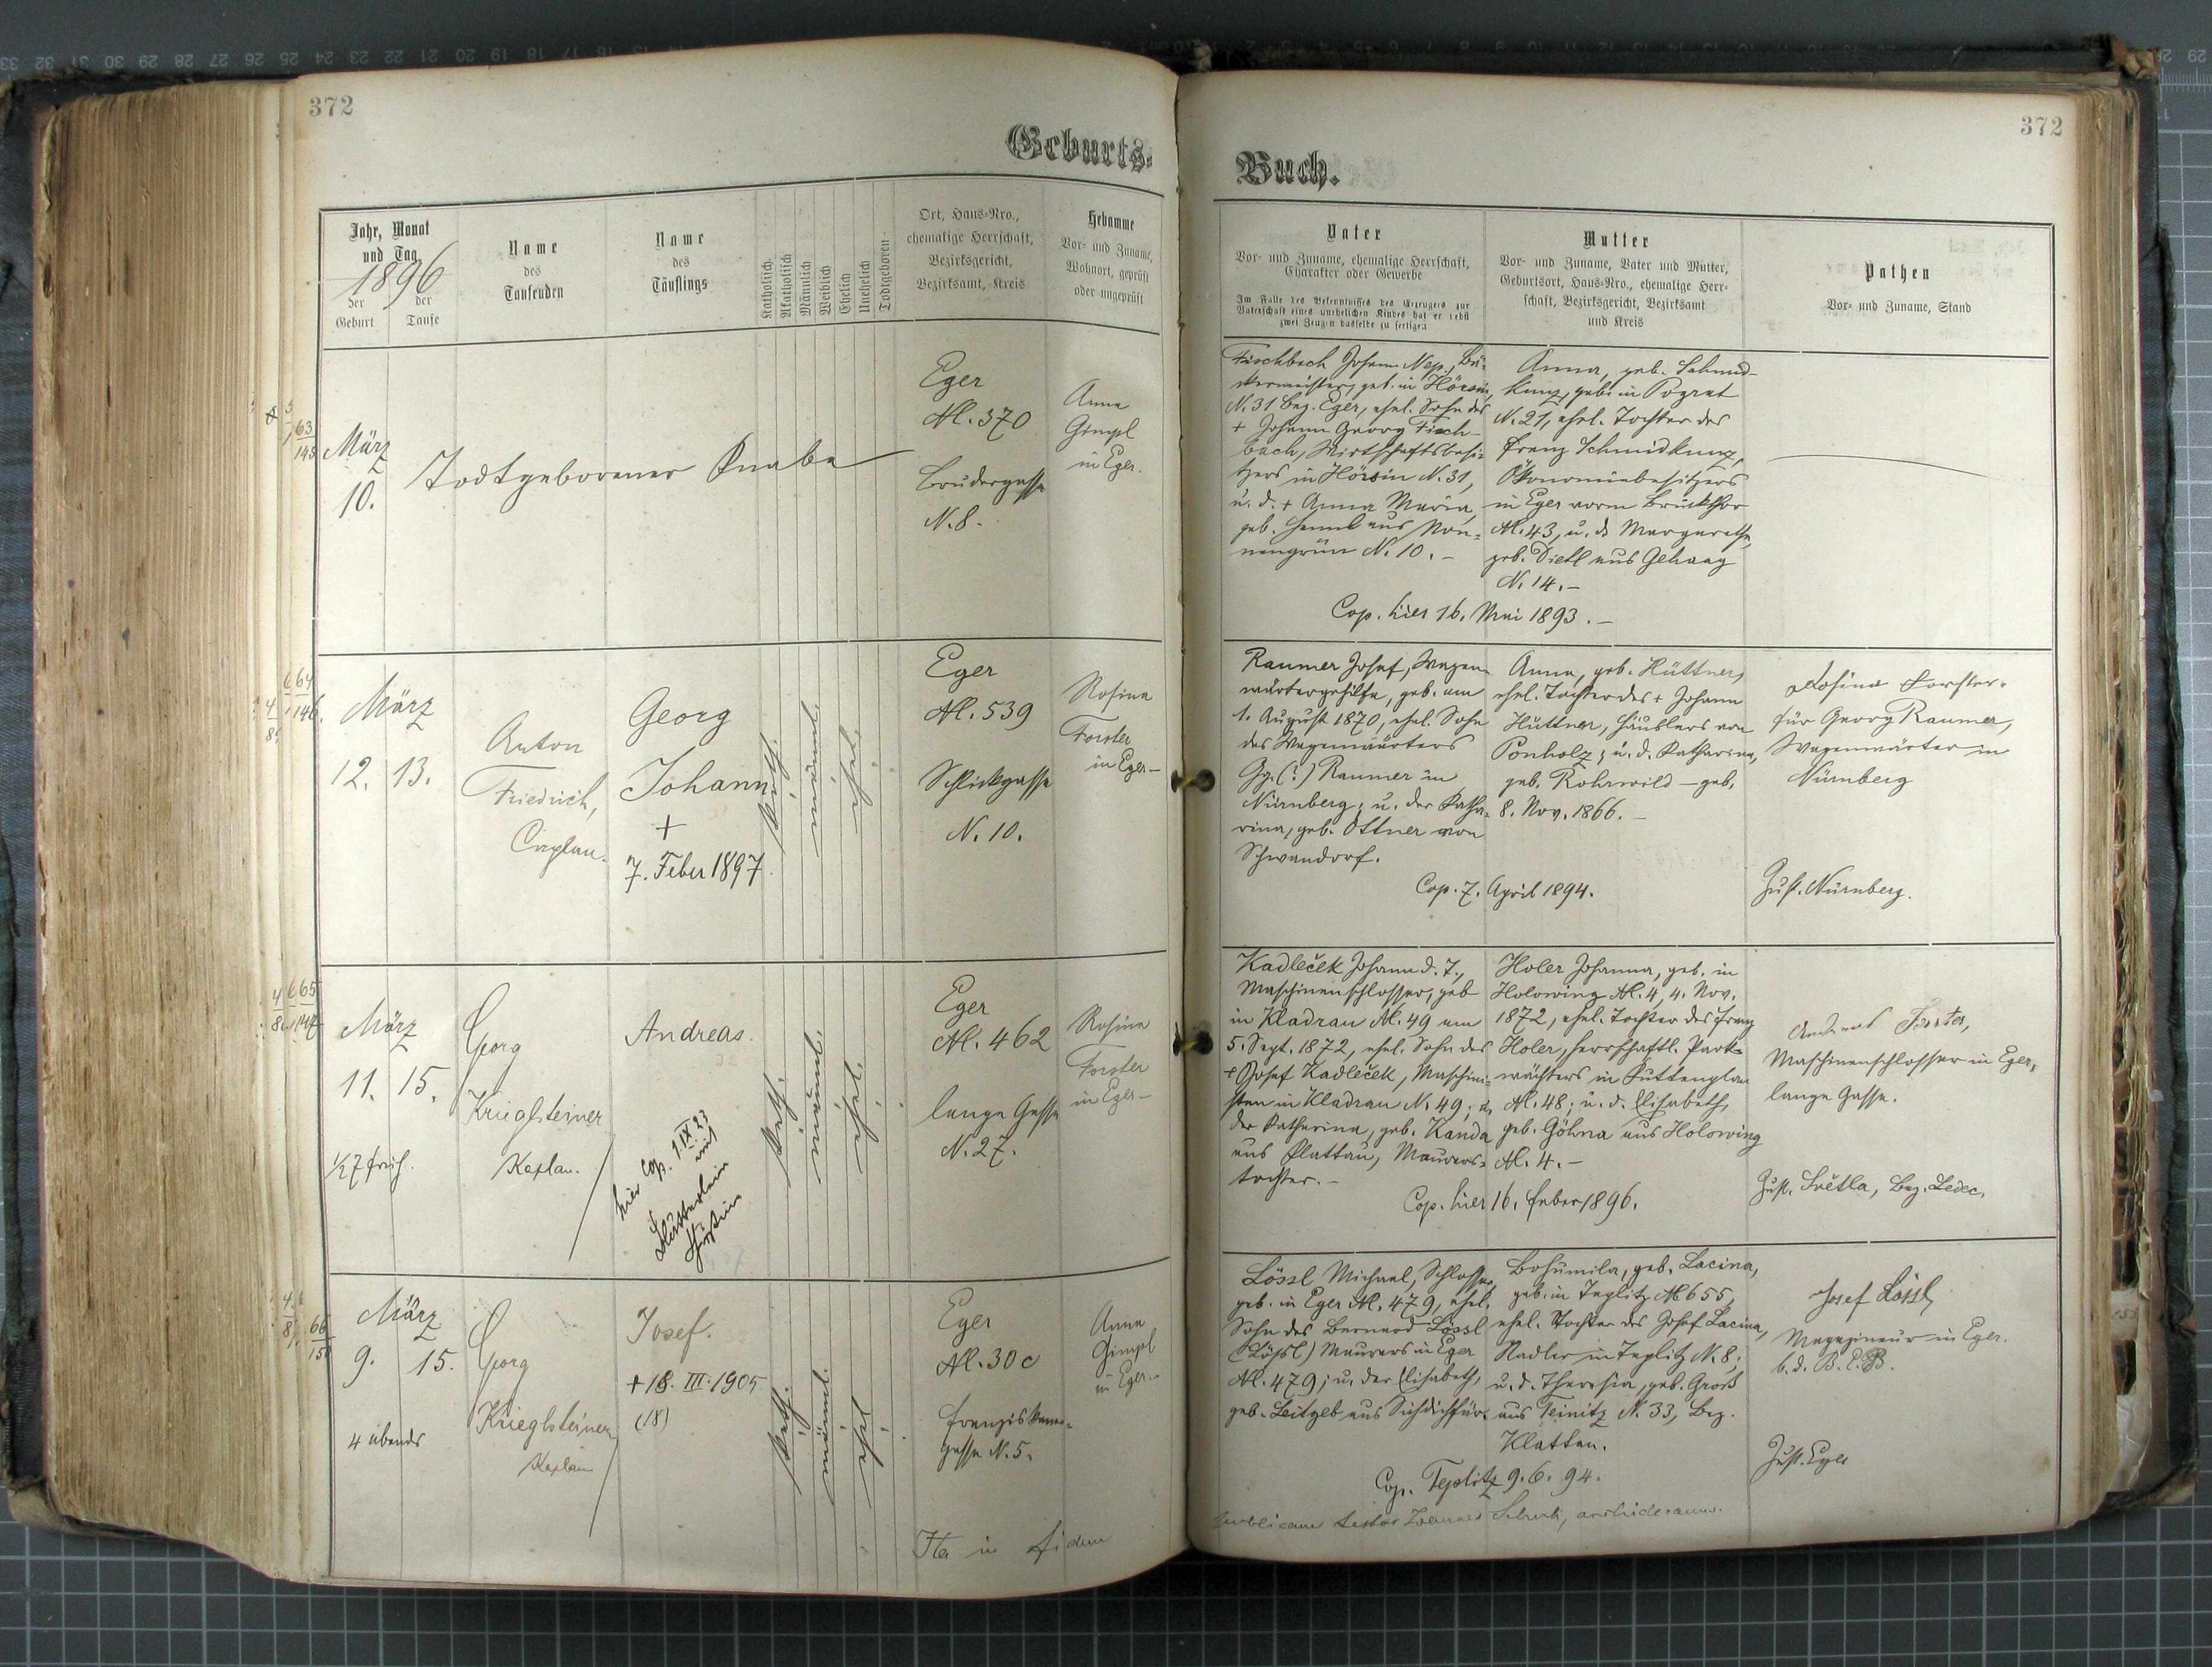 372
Geburts-
Jahr, Monat
und Tag
1896
der
Geburt
der
Taufe
Name
des
Taufenden
Name
des
Täuflings
Katholisch
Akatholisch
Männlich
Weiblich
Ehelich
Unehelich
Todtgeboren
Ort, Haus-Nro.,
ehemalige Herrschaft,
Bezirksgericht,
Bezirksamt, Kreis
Hebamme
Vor- und Zuname,
Wohnort, geprüft
oder ungeprüft
63
März
10.
Todtgeborener Knabe
Eger
N. 370
Brudergasse
N. 8.
Anna
Gimpl
in Eger.
64
146.
März
12. 13.
Anton
Friedrich,
Caplan.
Georg
Johann
+
7. Feber 1897.
kath.
männl.
ehel.
Eger
N. 539
Schlickgasse
N. 10.
Rosina
Forster
in Eger –
65
147
März
11. 15.
½7 früh.
Georg
Krieglsteiner
Kaplan.
Andreas.
hier cop. 1.IX.23
mit
kath.
männl.
ehel.
Eger
N. 462
lange Gasse
N. 27.
Rosina
Forster
in Eger –
66
März
9. 15.
4 abends
Georg
Krieglsteiner
Kaplan
Josef.
+ 18. III. 1905
(18)
kath.
männl.
ehel.
Eger
N. 30 c
Franziskaner-
gasse N. 5.
Anna
Gimpl
in Eger. –
Ita in fidem
372
Buch.
Vater
Vor- und Zuname, ehemalige Herrschaft,
Charakter oder Gewerbe
Im Falle des Bekenntnisses des Erzeugers zur
Vaterschaft eines unehelichen Kindes hat er nebst
zwei Zeugen dasselbe zu fertigen
Mutter
Vor- und Zuname, Vater und Mutter,
Geburtsort, Haus-Nro., ehemalige Herr-
schaft, Bezirksgericht, Bezirksamt
und Kreis
Pathen
Vor- und Zuname, Stand
Fischbach Johann Nep., Bä-
ckermeister, geb. in Hörsin,
N. 31 Bez. Eger, ehel. Sohn des
+ Johann Georg Fisch-
bach, Wirtschaftsbesi-
tzers in Hörsin N. 31,
u. d. + Anna Maria,
geb. Hannl aus Non-
nengrün N. 10. –
Anna, geb. Schmid-
kunz, geb. in Pograt
N. 21, ehel. Tochter des
Franz Schmidkunz,
Ökonomiebesitzers
in Eger vorm Bruckthor
N. 43, u. d. Margareth,
geb. Dietl aus Gehaag
N. 14. –
Cop. hier 16. Mai 1893. –
Raumer Josef, Wagen-
wärtergehilfe, geb. am
1. August 1870, ehel. Sohn
des Wagenwärters
Gg. (?) Raumer in
Nürnberg; u. der Katha-
rina, geb. Ottner von
Schwandorf.
Anna, geb. Hüttner,
ehel. Tochter des + Johann
Hüttner, Häuslers von
Ponholz; u. d. Katharina,
geb. Rohrwild – geb.
8. Nov. 1866. –
Cop. 7. April 1894.
Rosina Forster.
für Georg Raumer,
Wagenwärter in
Nürnberg
Zust. Nürnberg.
Kadleček Johann d. T.,
Maschinenschlosser, geb
in Kladrau N. 49 am
5. Sept. 1872, ehel. Sohn des
+ Josef Kadleček, Maschini-
sten in Kladrau N. 49; u.
der Katharina, geb. Kanda
aus Plattau, Maurers-
tochter. –
Holer Johanna, geb. in
Holowing N. 4, 4. Nov.
1872, ehel. Tochter des Franz
Holer, herrschaftl. Park-
wächters in Kuttenplan
N. 48; u. d. Elisabeth,
geb. Göhna aus Holowing
N. 4. –
Cop. hier 16. Feber 1896.
Andreas Forster,
Maschinenschlosser in Eger,
lange Gasse.
Zust. Světla, Bez. Ledec.
Lössl Michael, Schlosser,
geb. in Eger N. 479, ehel.
Sohn des Bernard Lössl
(Lößl) Maurers in Eger
N. 479; u. der Elisabeth,
geb. Leitgeb aus Sichdichfür.
Bohumila, geb. Lacina,
geb. in Teplitz N. 655,
ehel. Tochter des Josef Lacina,
Nadler in Teplitz N. 8;
u. d. Theresia, geb. Gross
aus Teinitz N. 33, Bez.
Klattau.
Cop. Teplitz 9. 6. 94.
Josef Lössl,
Magazineur in Eger.
b. d. B. E. B.
Zust. Eger
publicam testor Joannes